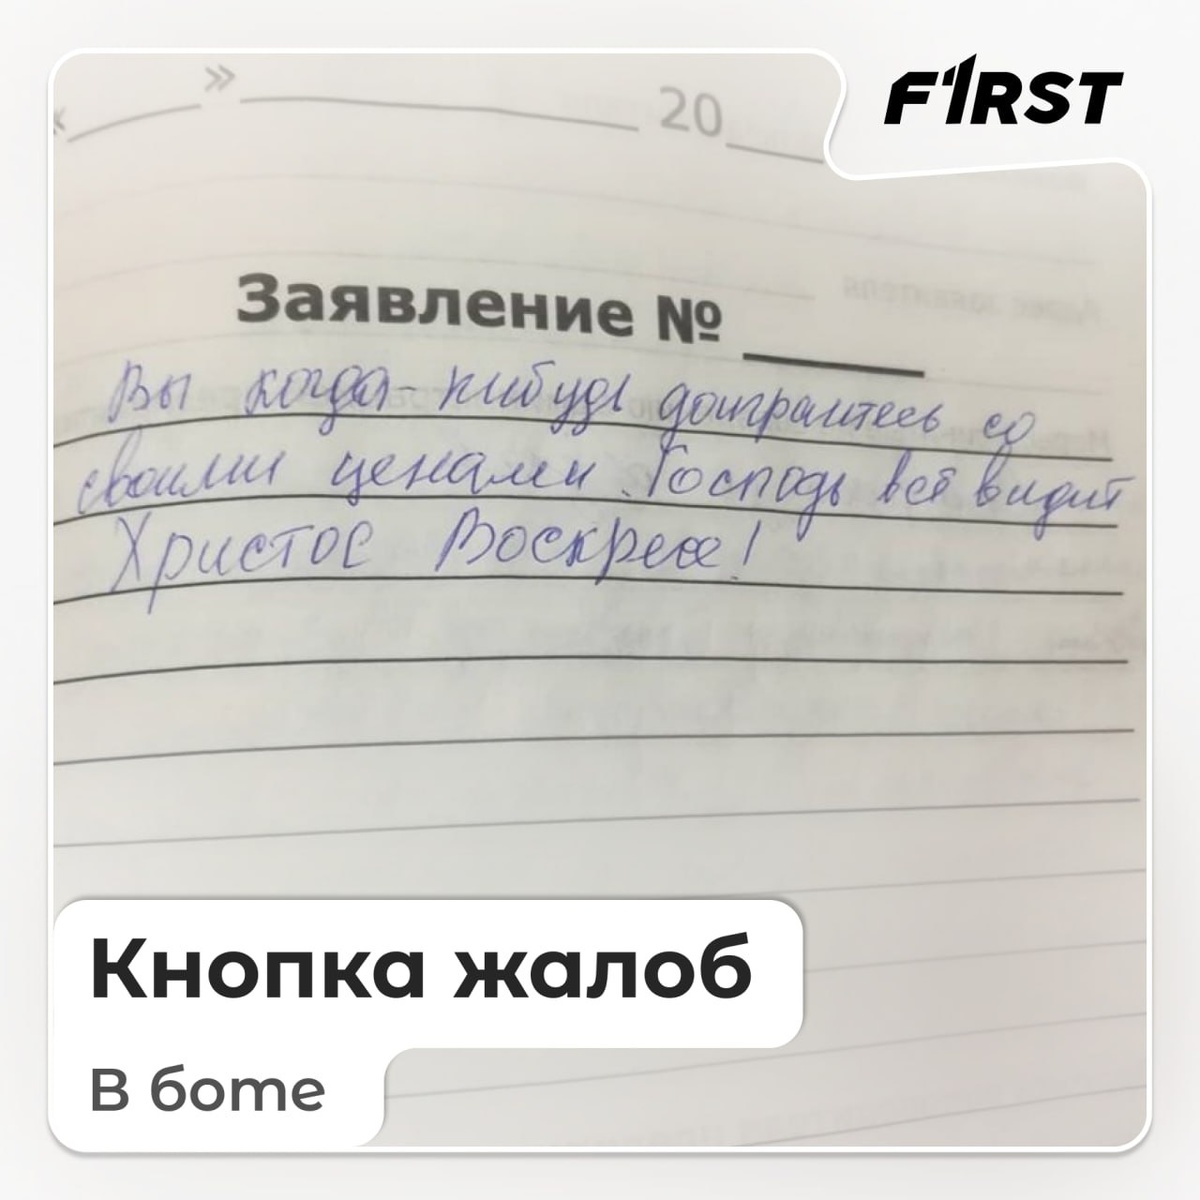 F1RST
« ____ » ____________ 20____
Заявление № ____
Вы когда-нибудь доиграитесь со
своими ценами. Господь всё видит
Христос Воскресе!
Кнопка жалоб
В боте